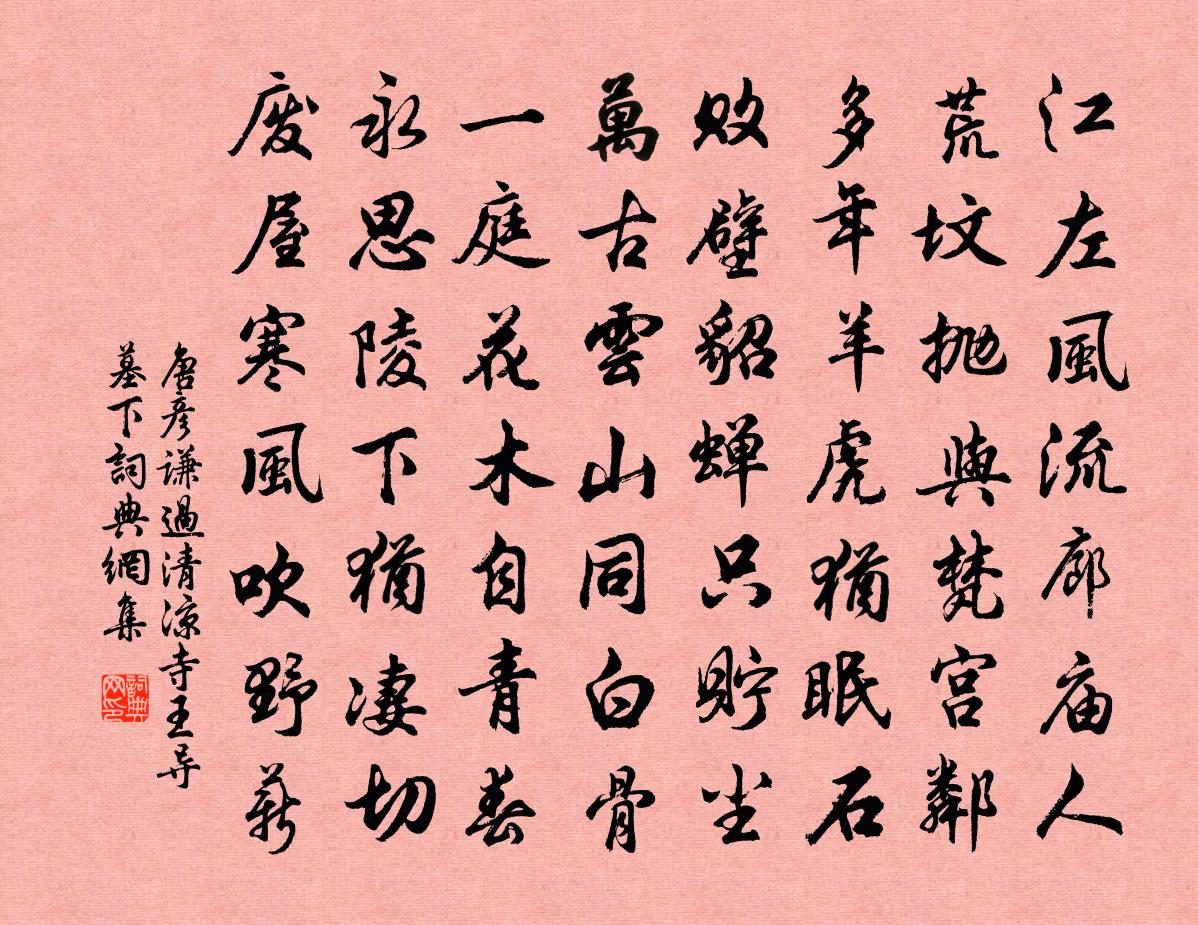 江左風流廊庙人
荒坟抛與梵宫鄰
多年羊虎猶眠石
败壁貂蝉只貯尘
萬古雲山同白骨
一庭花木自青春
永思陵下猶凄切
废屋寒風吹野薪
唐彦谦過清凉寺王导
墓下詞典網集
詞典网印